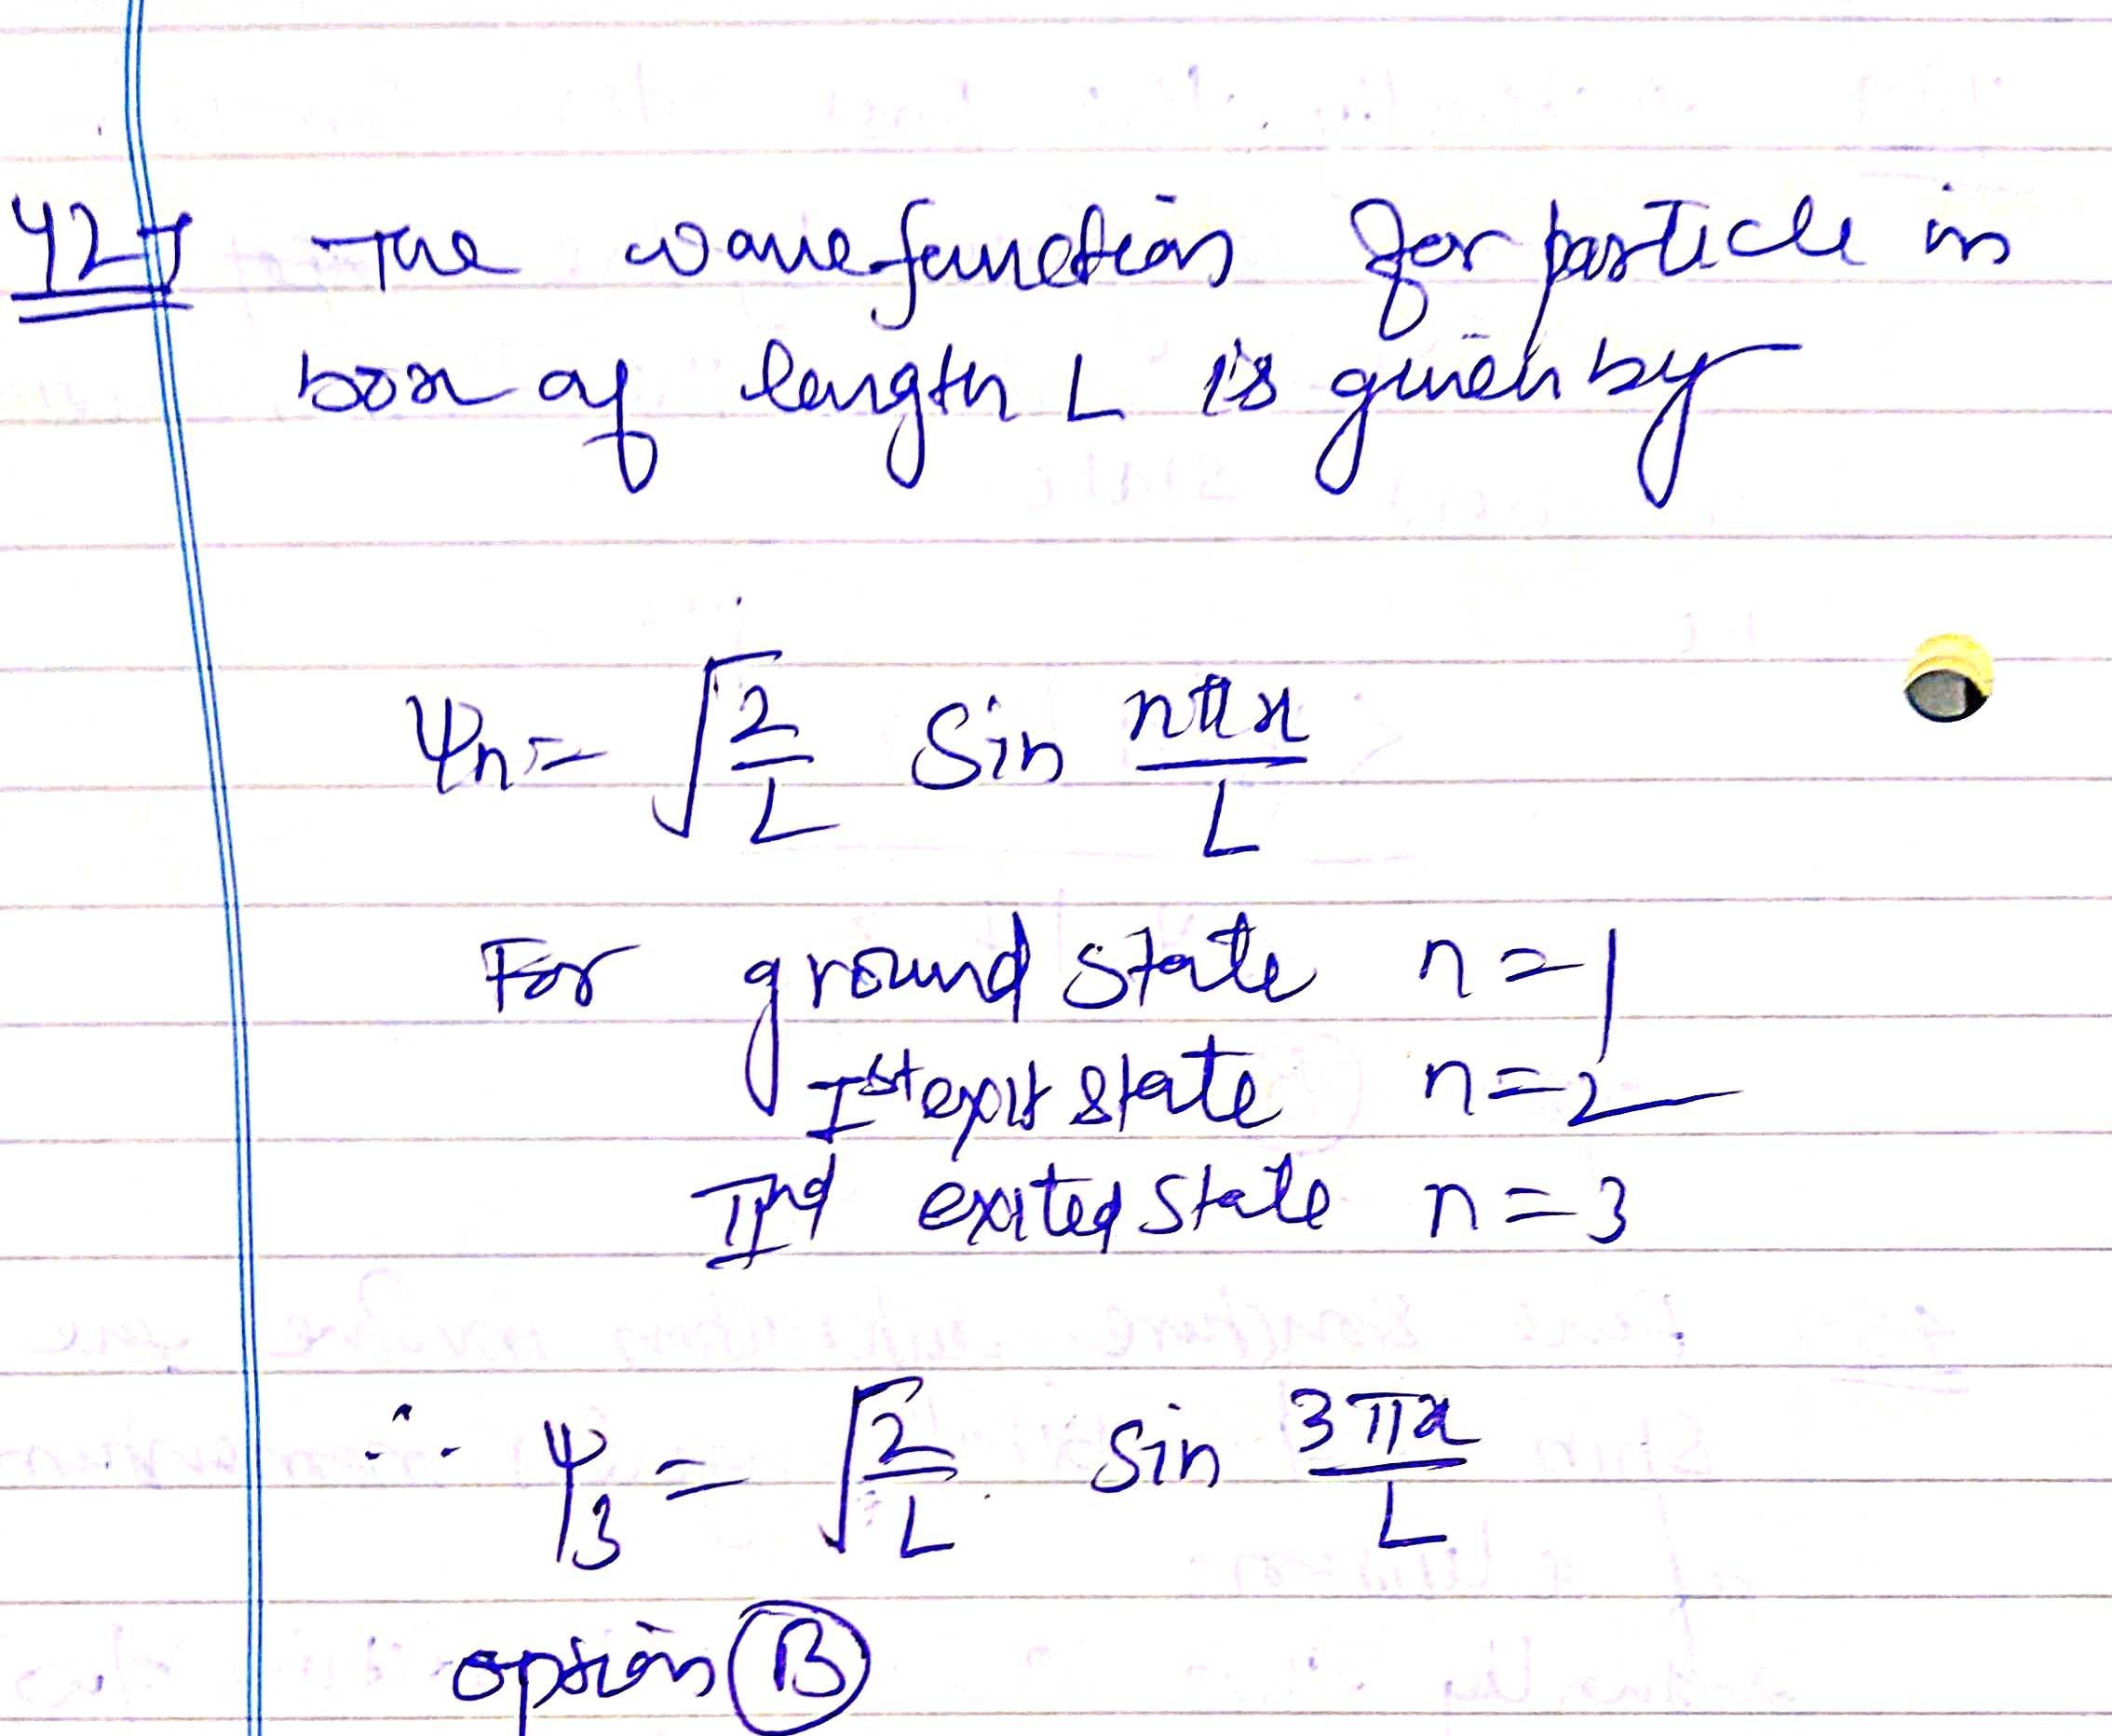 42)
The wavefunction for particle in
box of length L is given by
Ψn = √(2/L) Sin nπx/L
For ground state n=1
Ist exit state n=2
IInd exited state n=3
∴ Ψ3 = √(2/L) Sin 3πx/L
option (B)